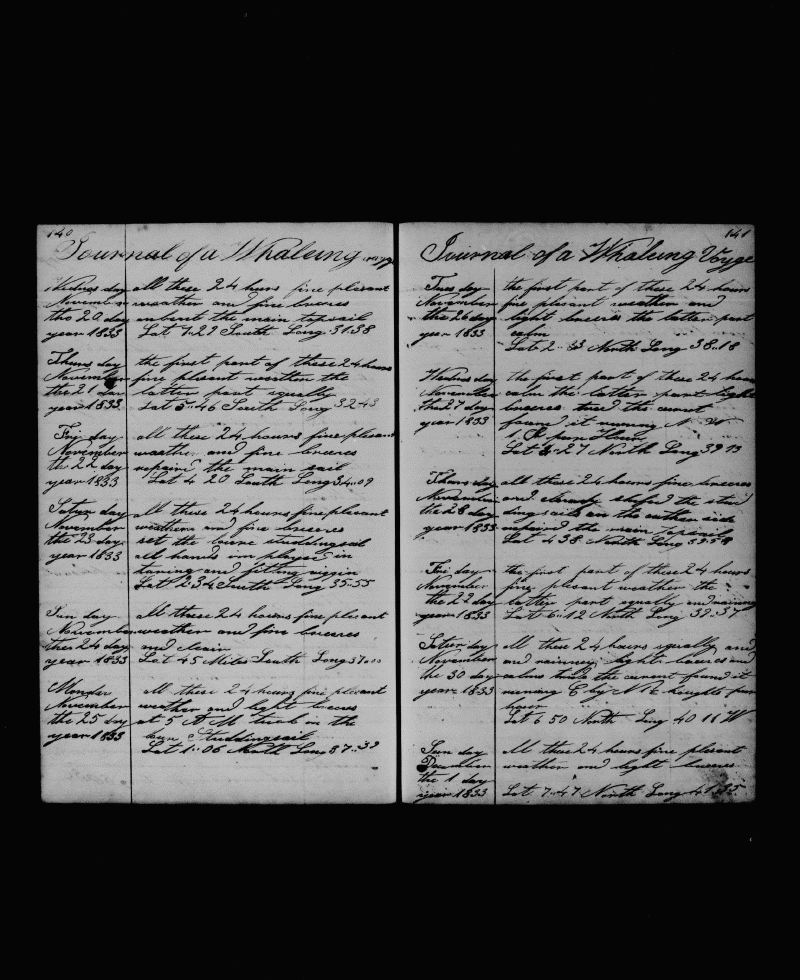 140
Journal of a Whaleing voyge
Wednes day all these 24 hours fine plesant
November weather and fine breeses
the 20 day unbent the main topsail
year 1833 Lat 7..29 South Long 31:38
Thurs day the first part of these 24 hours
November fine plesant weather the
the 21 day latter part squally
year 1833 Lat 5..46 South Long 32..43
Fri day all these 24 hours fine plesant
November weather and fine breeses
the 22 day repaird the main sail
year 1833 Lat 4 20 South Long 34..09
Satur day all these 24 hours fine plesant
November weather and fine breeses
the 23 day set the studdingsail
year 1833 all hands imployed in
taring and fitting riggin
Lat 2:34 South Long 35:55
Sun day all these 24 hours fine plesant
November weather and fine breeses
the 24 day and clear
year 1833 Lat 45 Miles South Long 37..00
Monday all these 24 hours fine plesant
November weather and light breeses
the 25 day at 5 A M took in the
year 1833 Studdingsail
Lat 1..06 North Long 37..39
141
Journal of a Whaleing Voyge
Tues day the first part of these 24 hours
November fine plesant weather and
the 26 day light breeses the latter part
year 1833 calm
Lat 2..33 North Long 38..18
Wednes day the first part of these 24 hours
November calm the latter part light
the 27 day breeses tried the current
year 1833 found it runing N. W
Lat 3..27 North Long 39 13
Thurs day all these 24 hours fine breeses
November and the stud
the 28 day ding sails on the other side
year 1833 the main
Lat 4 38 North Long 39:58
Fri day the first part of these 24 hours
November fine plesant weather the
the 29 day latter part squally and raining
year 1833 Lat 6..12 North Long 39..57
Satur day all these 24 hours squally and
November and rainney light breeses and
the 30 day calms tride the current found it
year 1833 runing E by N ½ knughts pur
hour
Lat 6 50 North Long 40 11 W
Sun day all these 24 hours fine plesant
December weather and light breeses
the 1 day
year 1833 Lat 7..47 North Long 41..15